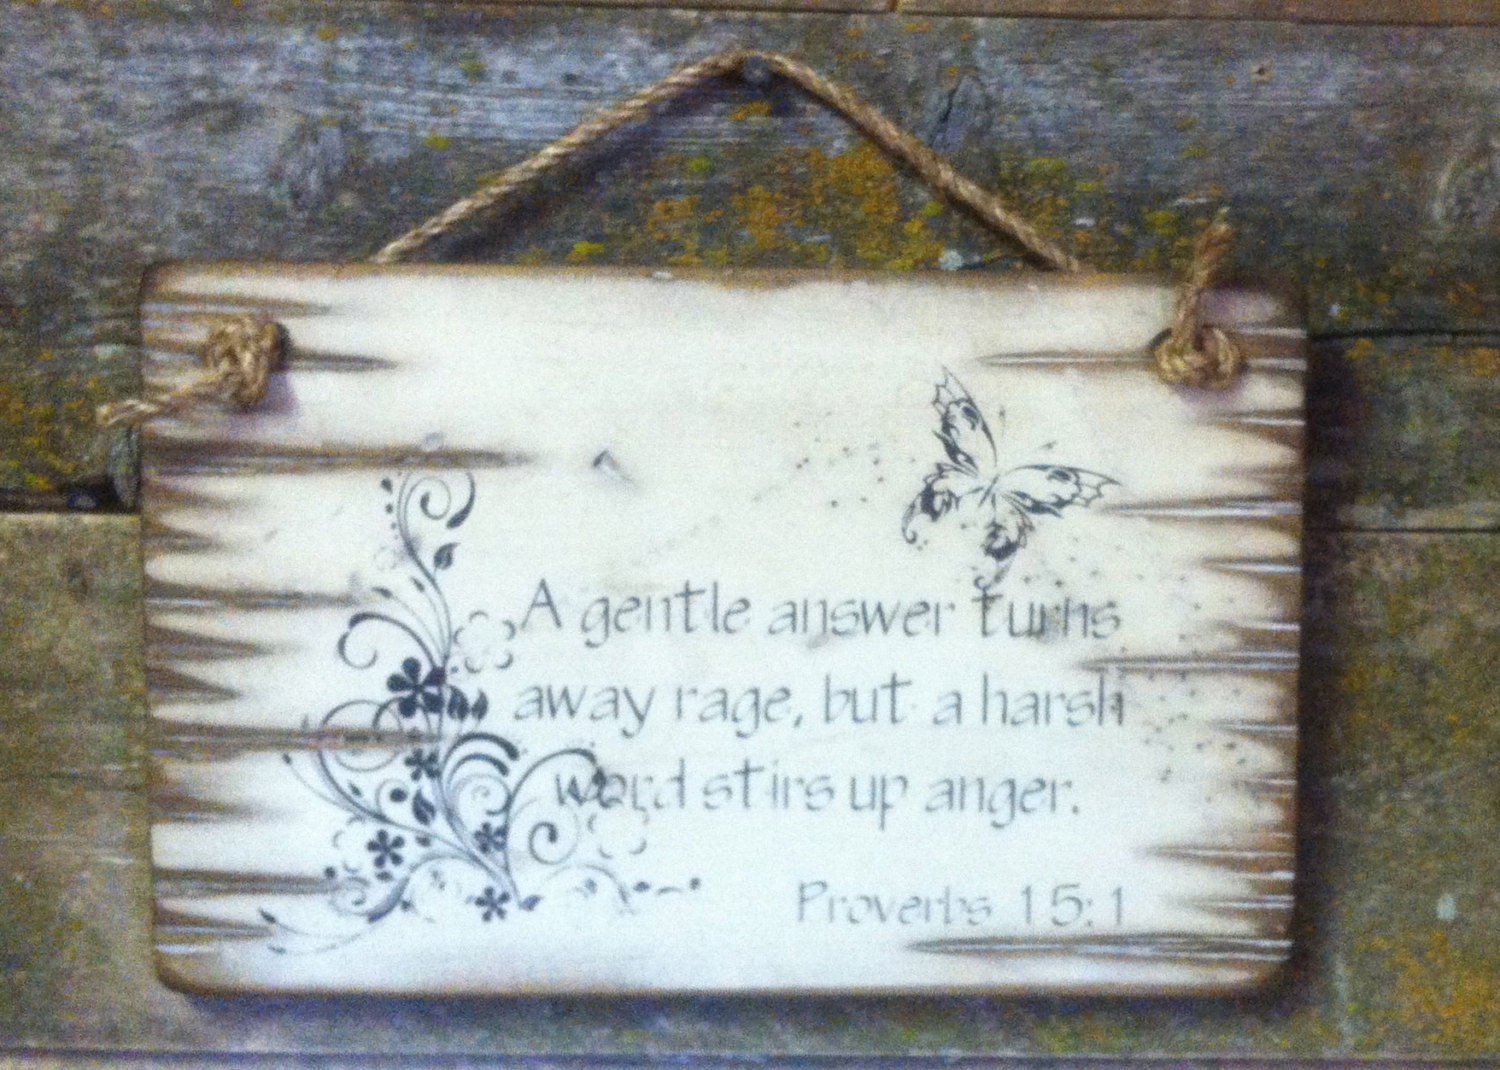 A gentle answer turns
away rage, but a harsh
word stirs up anger.
Proverbs 15:1